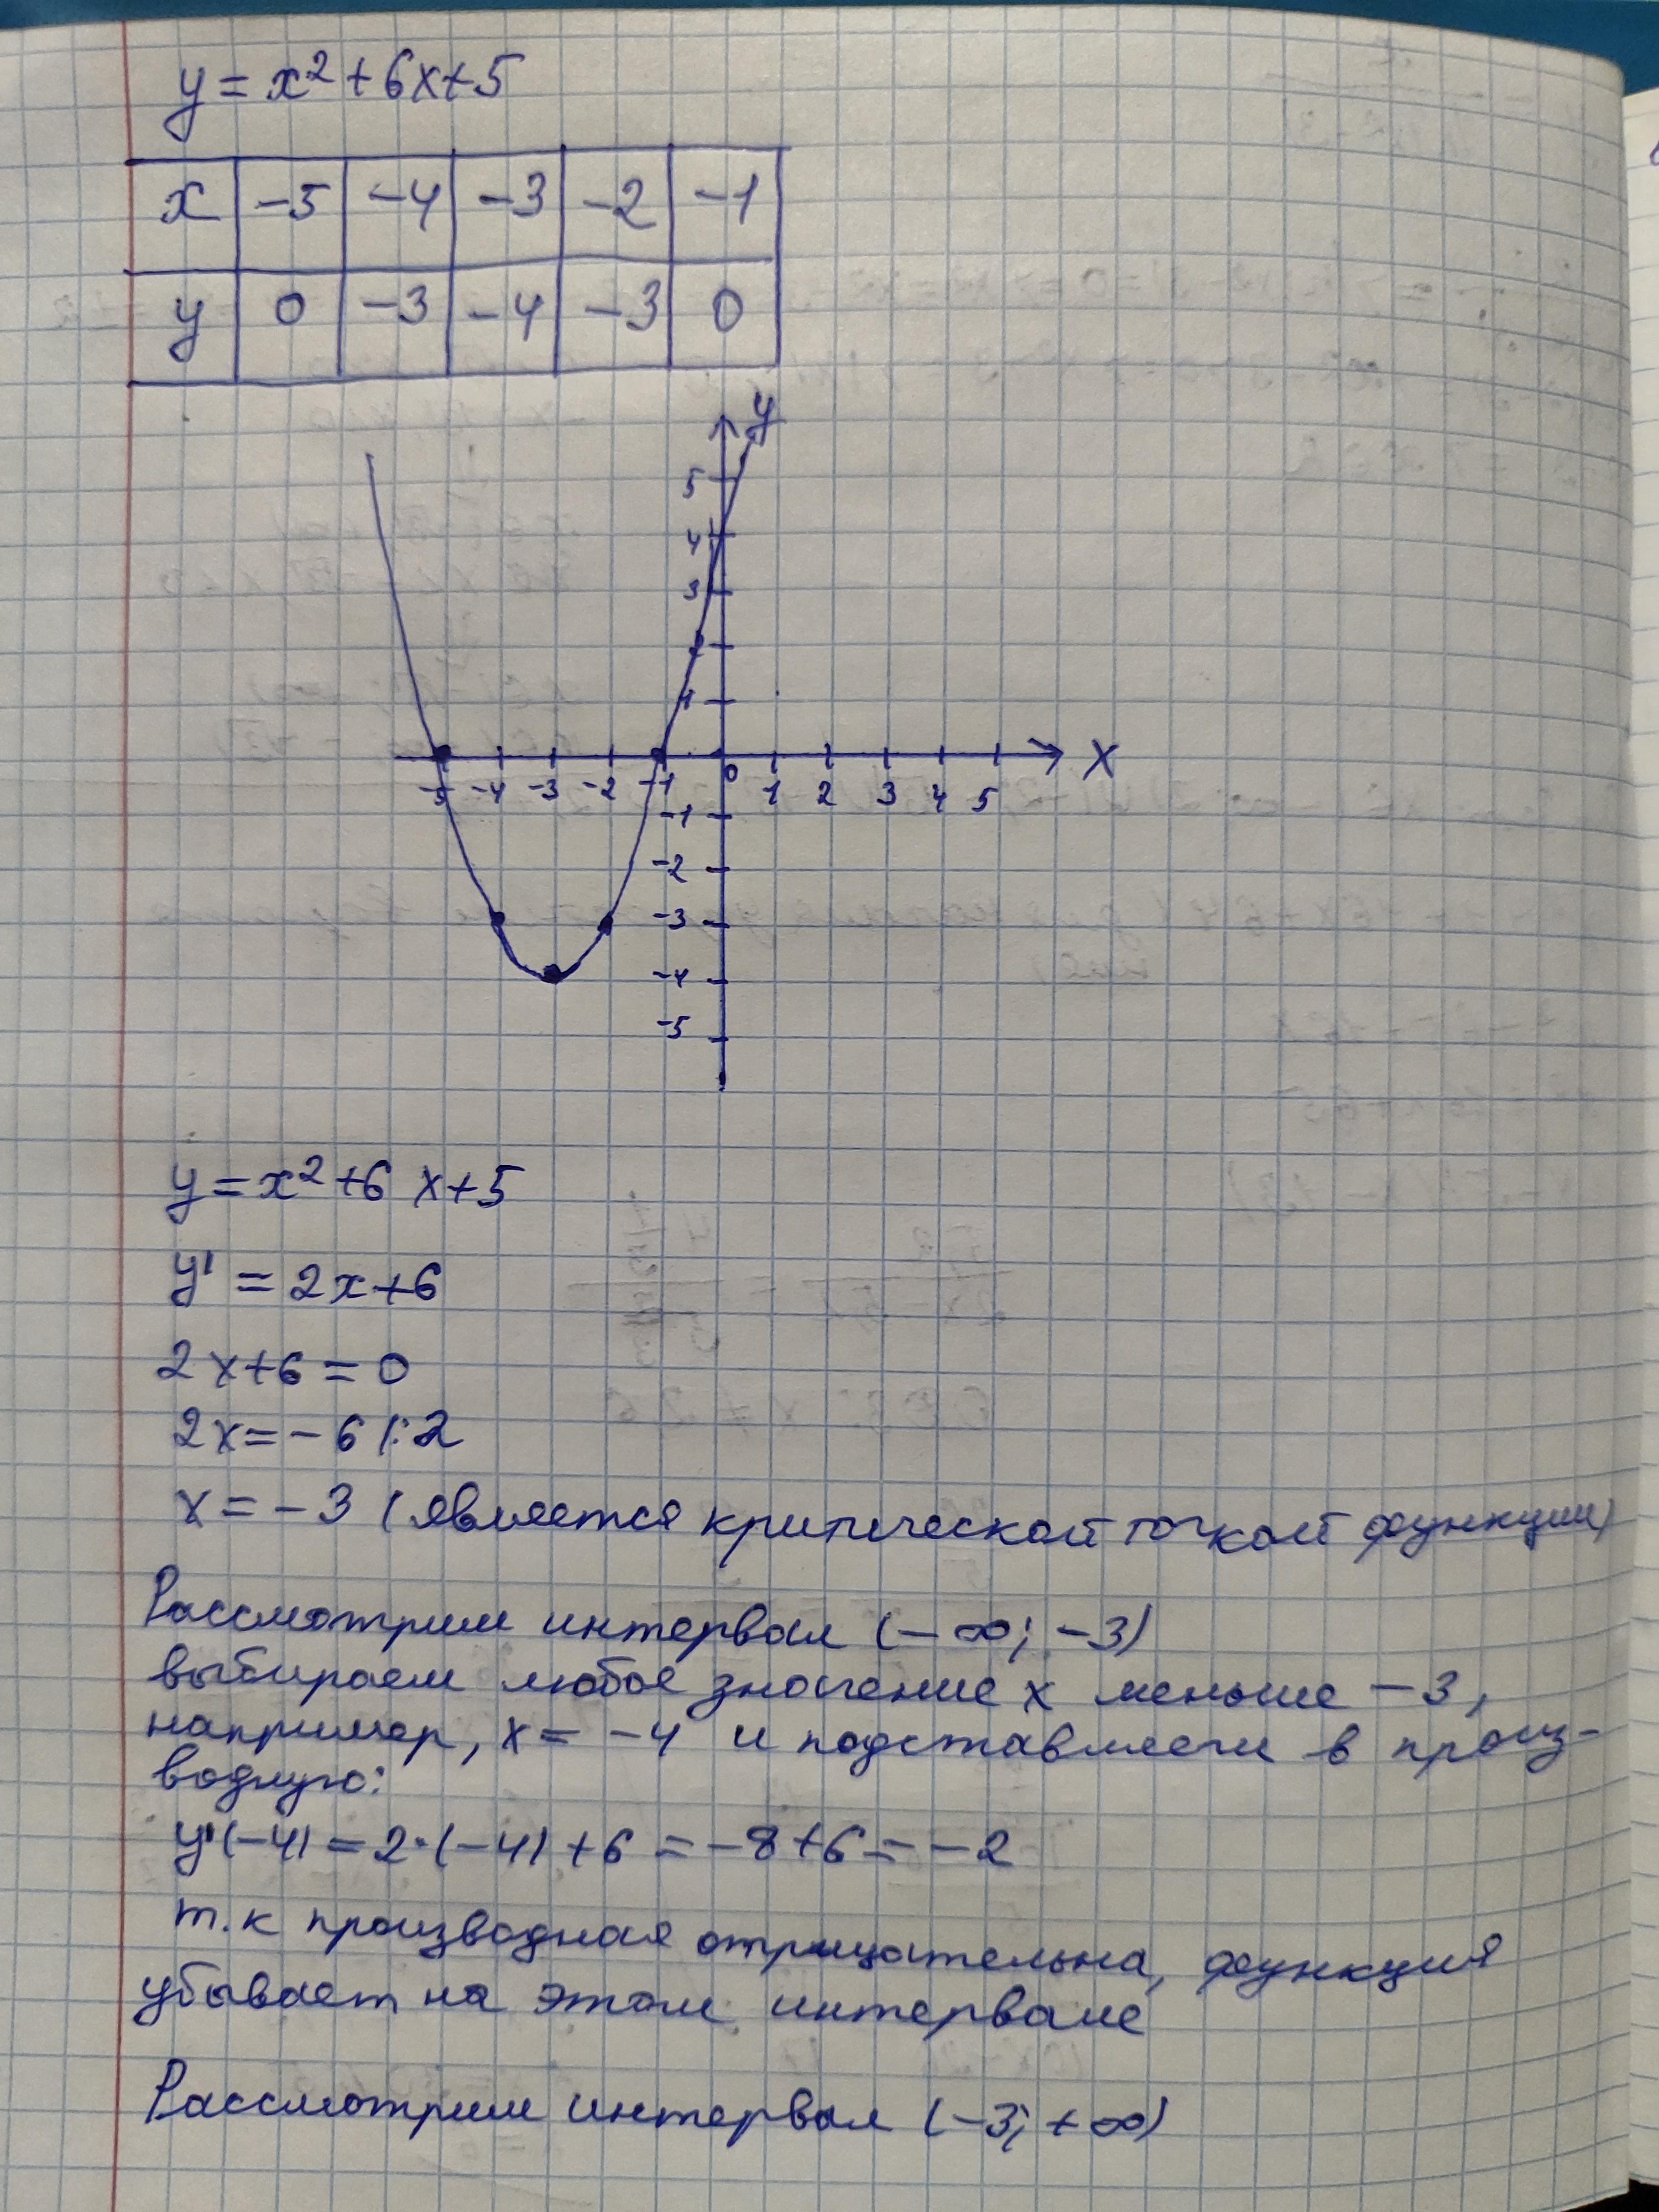 y = x² + 6x + 5
x -5 -4 -3 -2 -1
y 0 -3 -4 -3 0
y
5
4
3
2
1
-5 -4 -3 -2 -1 0 1 2 3 4 5 x
-1
-2
-3
-4
-5
y = x² + 6x + 5
y' = 2x + 6
2x + 6 = 0
2x = -6 |:2
x = -3 (является критической точкой функции)
Рассмотрим интервал (-∞; -3)
выбираем любое значение x меньше -3,
например, x = -4 и подставляем в произ-
водную:
y'(-4) = 2·(-4) + 6 = -8 + 6 = -2
т.к производная отрицательна, функция
убывает на этом интервале
Рассмотрим интервал (-3; +∞)